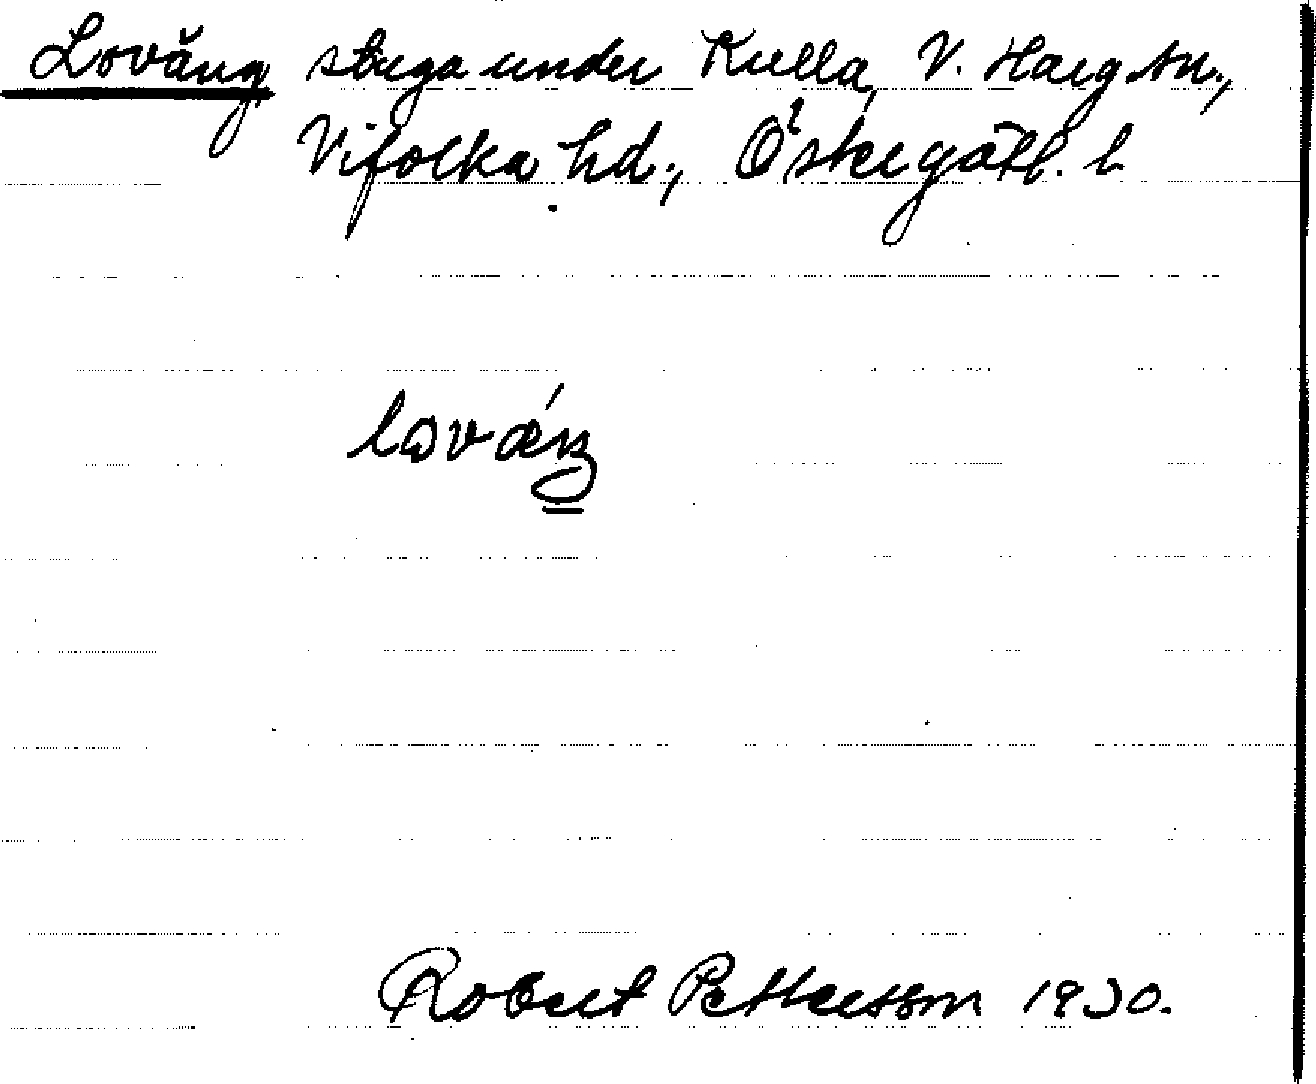 Loväng stuga under Kulla, V. Harg sn.,
Vifolka hd., Östergötl. l
lovæŋ
Robert Pettersson 1930.